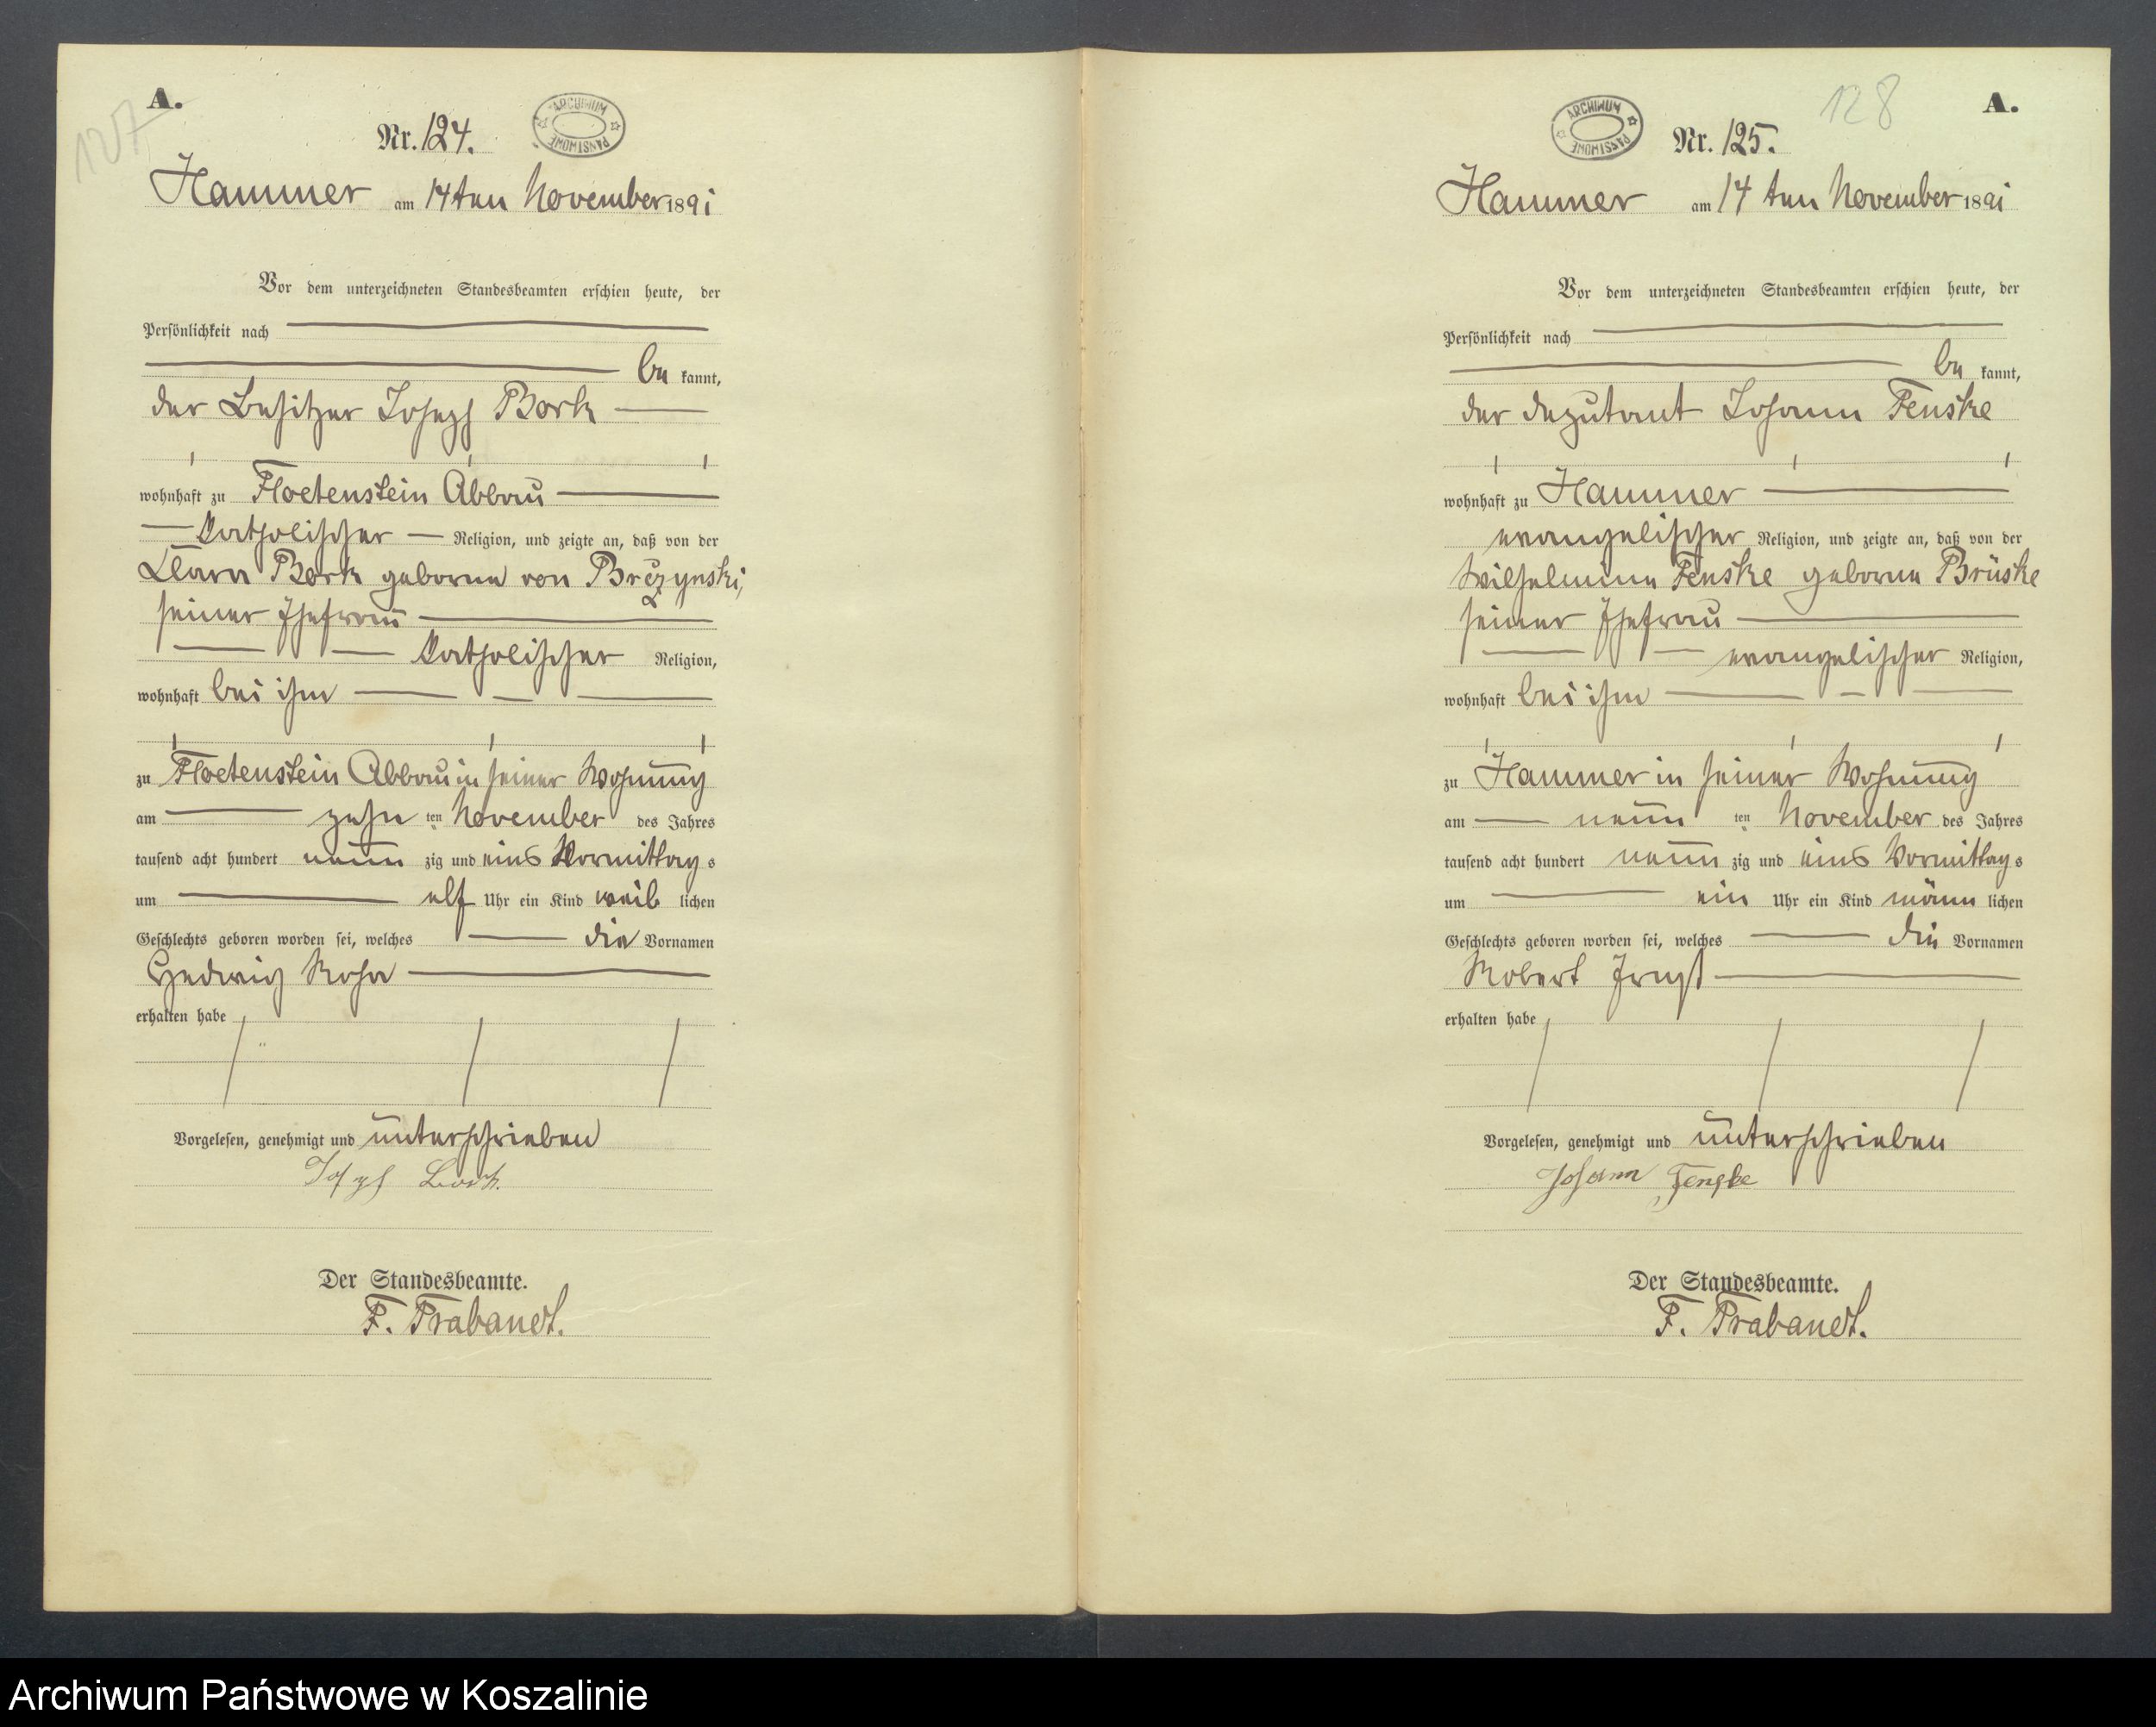 A.
127
Nr. 124.
ARCHIWUM PAŃSTWOWE
Hammer am 14ten November 1891
Vor dem unterzeichneten Standesbeamten erschien heute, der
Persönlichkeit nach
be kannt,
der Besitzer Joseph Bork
wohnhaft zu Floetenstein Abbau
katholischer Religion, und zeigte an, daß von der
Clara Bork geborne von
seiner Ehefrau
katholischer Religion,
wohnhaft bei ihm
zu Floetenstein Abbau in seiner Wohnung
am zehn ten November des Jahres
tausend acht hundert neun zig und eins Vormittag s
um elf Uhr ein Kind weib lichen
Geschlechts geboren worden sei, welches die Vornamen
Hedwig Rosa
erhalten habe
Vorgelesen, genehmigt und unterschrieben
Joseph Bork.
Der Standesbeamte.
F. Prabandt.
128
A.
ARCHIWUM PAŃSTWOWE
Nr. 125.
Hammer am 14 ten November 1891
Vor dem unterzeichneten Standesbeamten erschien heute, der
Persönlichkeit nach
be kannt,
der Deputant Johann Fenske
wohnhaft zu Hammer
evangelischer Religion, und zeigte an, daß von der
Wilhelmine Fenske geborne Brüske
seiner Ehefrau
evangelischer Religion,
wohnhaft bei ihm
zu Hammer in seiner Wohnung
am neun ten November des Jahres
tausend acht hundert neun zig und eins Vormittag s
um ein Uhr ein Kind männ lichen
Geschlechts geboren worden sei, welches die Vornamen
Robert Ernst
erhalten habe
Vorgelesen, genehmigt und unterschrieben
Johann Fenske
Der Standesbeamte.
F. Prabandt.
Archiwum Państwowe w Koszalinie